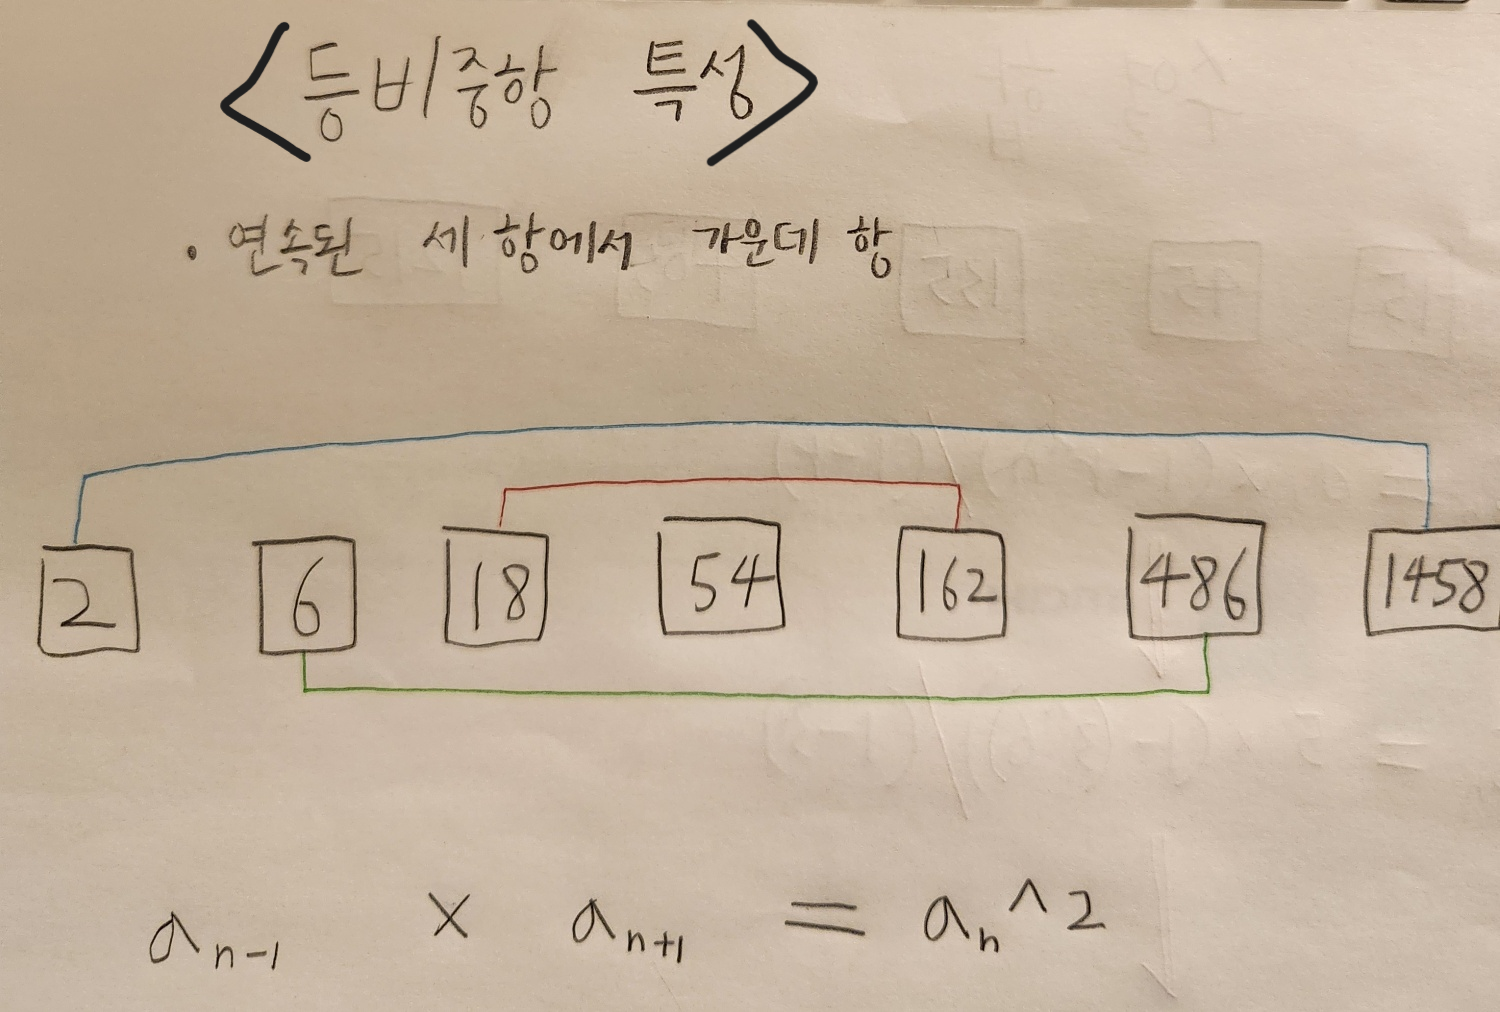 <등비중항 특성>
· 연속된 세 항에서 가운데 항
2 6 18 54 162 486 1458
a_{n-1} × a_{n+1} = a_n^2